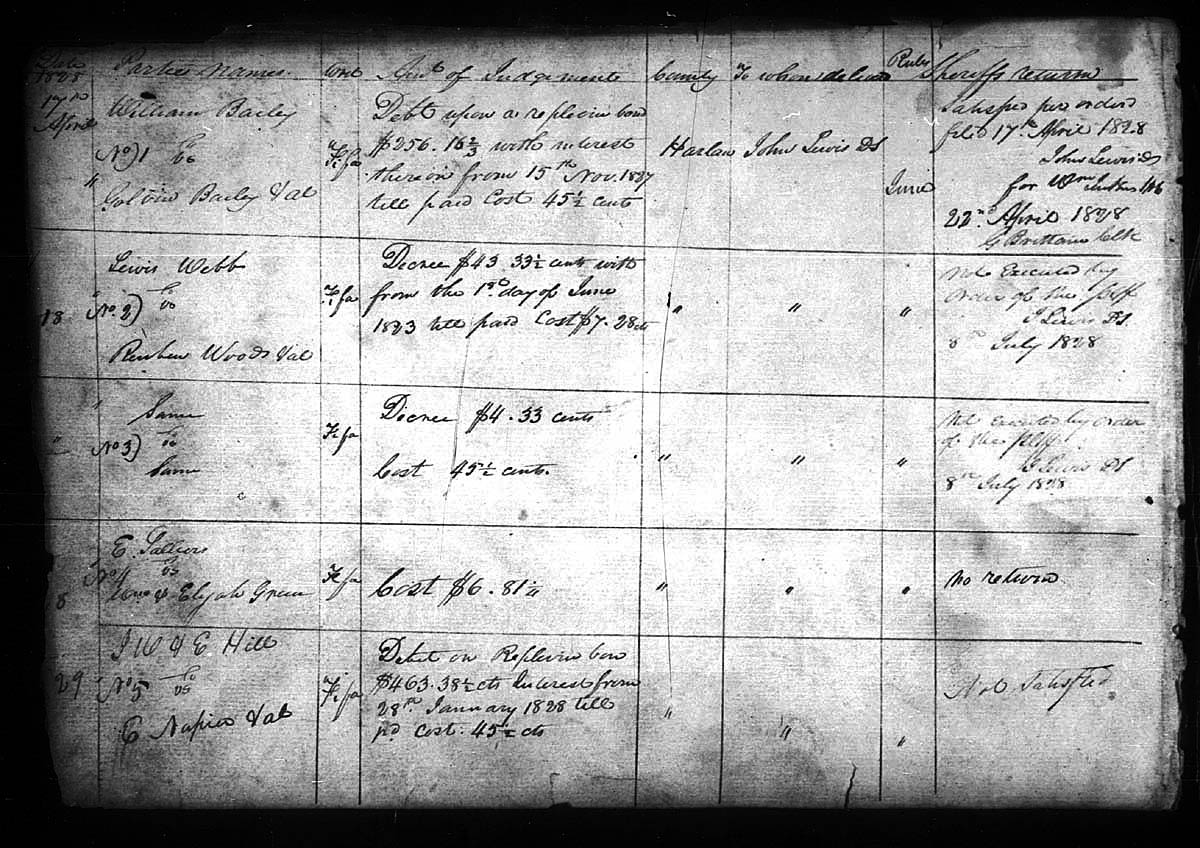 Date 1828 Parties Names. Writ Amt of Judgements County To whom delivd Rules Sheriffs return
17th April
William Bailey
No) 1 vs
Galvin Bailey &al
Fi fa
Debt upon a replevin bond
$256.16 2/3 with interest
thereon from 15th Nov. 1827
till paid Cost 45½ cents
Harlan John Lewis DS
June
Satisfied per order
filed 17th April 1828
John Lewis DS
for Wm
22nd April 1828
G Brittain Clk
18
Lewis Webb
No 2) vs
Reuben Woods &al
Fi fa
Decree $43 33½ cents with
from the 1st day of June
1823 till paid Cost $7.28 cts
" " "
Not Executed by
order of the plff
J Lewis DS
8th July 1828
"
Same
No 3) vs
Same
Fi fa
Decree $4.33 cents
Cost 45½ cents.
" " "
Not executed by order
of the plff
J Lewis DS
8th July 1828
8
E.
No 4 vs
& Elijah Green
Fi fa
Cost $6.81½
" " "
No return
29
J W & E Hill
No 5 vs
E Napier &al
Fi fa
Debt on Replevin bon
$463.38½ cts Interest from
28th January 1828 till
pd Cost. 45½ cts
" " "
Not Satisfied